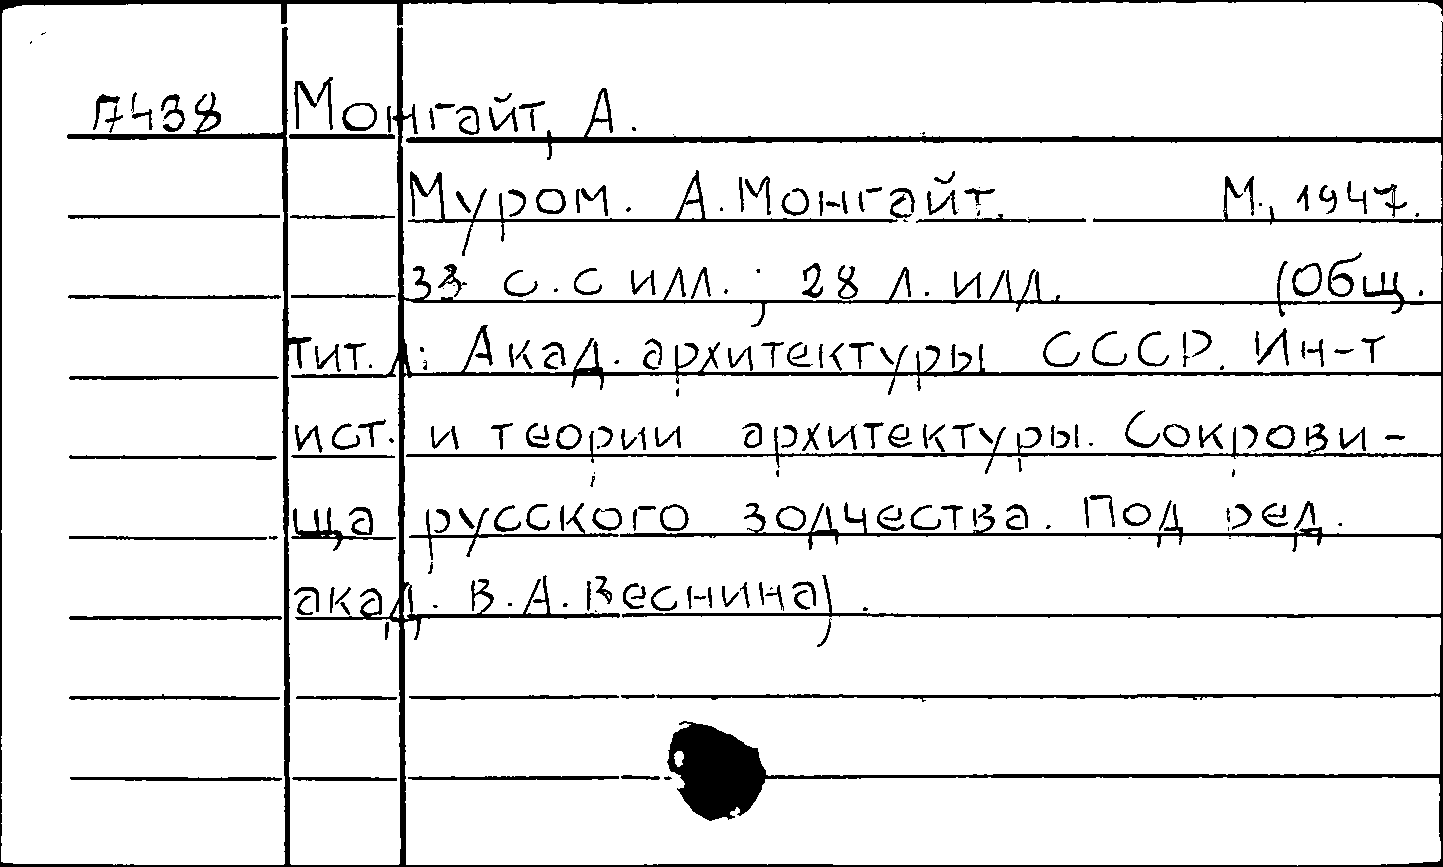 7438 Монгайт, А.
Муром. А. Монгайт. М., 1947.
33 с. с илл.; 28 л. илл. (Общ.
тит. л: Акад. архитектуры СССР. Ин-т
ист. и теории архитектуры. Сокрови-
ща русского зодчества. Под ред.
акад. В.А. Веснина).